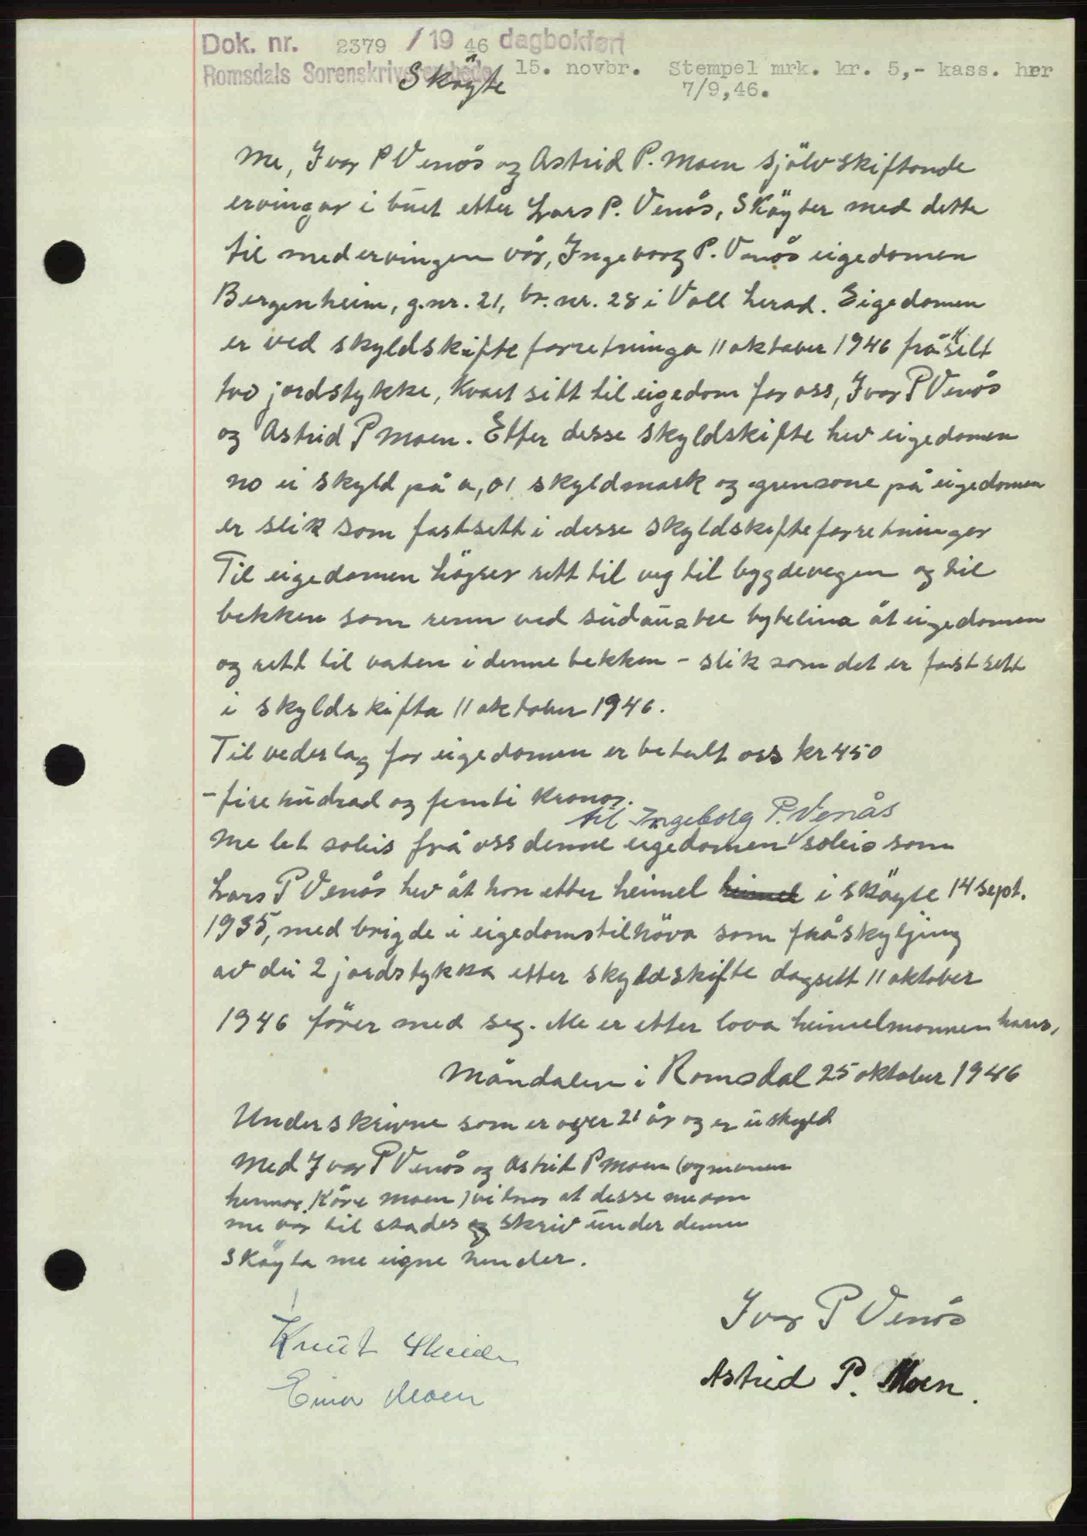 Dok. nr. 2379 / 19 46 dagbokført
Romsdals Sorenskriverembede 15. novbr. Stempel mrk. kr. 5,- kass. her
7/9,46.
Skøyte
Me, Ivar P Venås og Astrid P. Moen sjölvskiftande
ervingar i buet etter Lars P. Venås, Skøyter med dette
til medervingen vår, Ingeborg P. Venås eigedomen
Bergenheim, g.nr. 21, br. nr. 28 i Voll herad. Eigedomen
er ved skyldskifteforretninga 11 oktober 1946 fråskilt
tvo jordstykke, kvart sitt til eigedom for oss, Ivar P Venås
og Astrid P Moen. Etter desse skyldskifte hev eigedomen
no ei skyld på 0,01 skyldmark og grensone på eigedomen
er slik som fastsett i desse skyldskifteforretningar
Til eigedomen høyrer rett til veg til bygdevegen og til
bekken som renn ved südaustre bytelina åt eigedomen
og rett til vatten i denne bekken - slik som det er fastsett
i skyldskifta 11 oktober 1946.
Til vederlag for eigedomen er betalt oss kr 450
- firehüdrad og femti kronor.
til Ingeborg P. Venås
Me let soleis frå oss denne eigedomen soleis som
Lars P Venås hev åt hon etter heimel i skøyte 14 sept.
1935, med brigde i eigedomstilhöva som fråskyljing
av dei 2 jordstykka etter skyldskifte dagsett 11 oktober
1946 förer med seg. Me er etter lova heimelmannen hans,
Måndalen i Romsdal 25 oktober 1946
Underskrivne som er over 21 år og er uskyld
med Ivar P Venås og Astrid P Moen (og mannen
hennar, Kåre Moen) vitnar at desse
me var til stades og skriv under denne
Skøyta me eigne hender.
Ivar P Venås
Knut
Astrid P. Moen.
Einar Moen